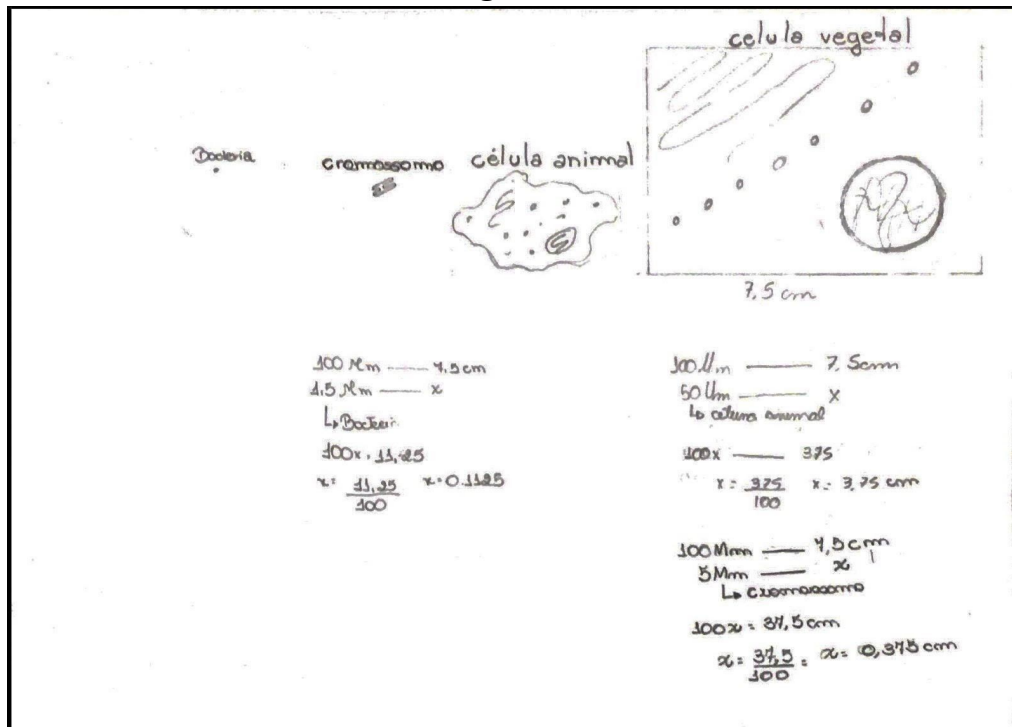 celula vegetal
Bacteria
cromossomo
célula animal
7,5 cm
100 Mm —— 7,5 cm
1,5 Mm —— x
↳ Bacteri
100x = 11,25
x = 11,25 / 100 x = 0.1125
100 Um —— 7,5 cm
50 Um —— X
↳ celula animal
100x —— 375
x = 375 / 100 x = 3,75 cm
100 Mm —— 7,5 cm
5 Mm —— x
↳ cromossomo
100x = 37,5 cm
x = 37,5 / 100 = x = 0,375 cm